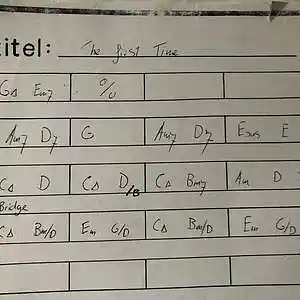 itel: The first Time
G△ Em7 %
Am7 D7 G Am7 D7 Esus E
C△ D C△ D/B C△ Bm7 Am D
Bridge
C△ Bm/D Em G/D C△ Bm/D Em G/D